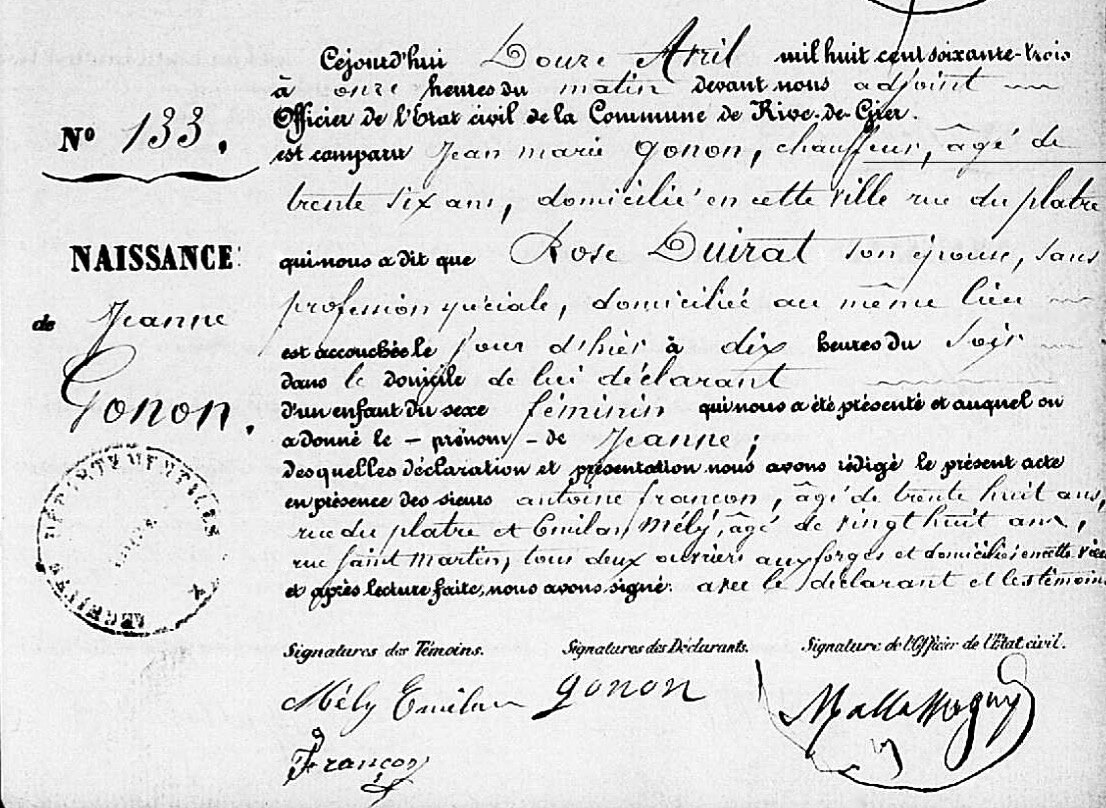 Cejourd'hui Douze Avril mil huit cent soixante-trois
à onze heures du matin devant nous adjoint
Officier de l'Etat civil de la Commune de Rive-de-Gier.
Nº 133.
est comparu Jean marie gonon, chauffeur, âgé de
trente six ans, domicilié en cette ville rue du platre
NAISSANCE
qui nous a dit que Rose Duirat son épouse, sans
profession spéciale, domiciliée au même lieu
de Jeanne
est accouchée le jour d'hier à dix heures du soir
dans le domicile de lui déclarant
Gonon.
d'un enfant du sexe féminin qui nous a été présenté et auquel on
a donné le - prénom - de Jeanne;
desquelles déclaration et présentation nous avons rédigé le présent acte
en présence des sieurs antoine françon, âgé de trente huit ans,
rue du platre et Emilan Mély, âgé de vingt huit ans,
rue saint Martin, tous deux ouvriers aux forges et domiciliés en cette ville
et après lecture faite, nous avons signé. avec le déclarant et les témoins
Signatures des Témoins. Signatures des Déclarants. Signature de l'Officier de l'Etat civil.
Mély Emilan gonon
Françon